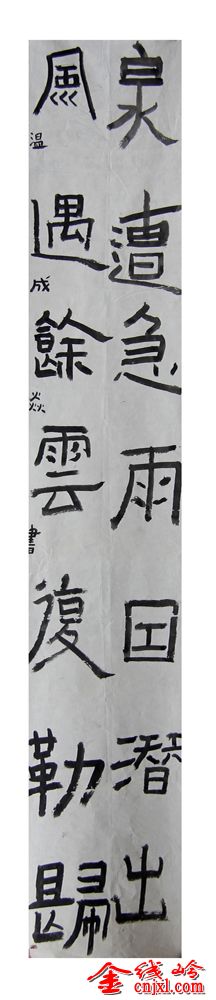 泉遭急雨囙潛出
風遇餘雲復勒歸
温成焱書
金线岭
cnjxl.com